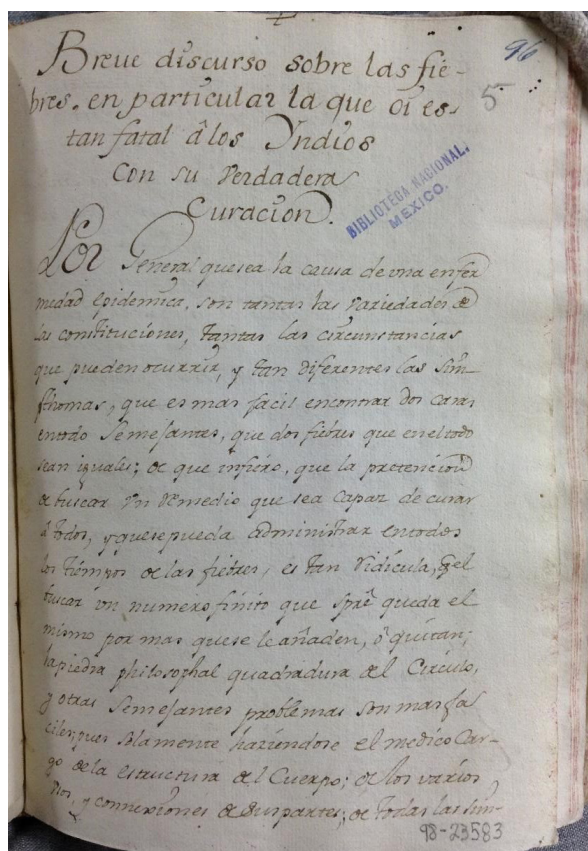 96
5
Breue discurso sobre las fie-
bres. en particular la que oi es-
tan fatal â los Yndios
Con su verdadera
Curacion.
BIBLIOTECA NACIONAL.
MEXICO.
Por General que sea la causa de vna enfer
medad epidemica, son tantas las variedades de
las constituciones, tantas las circunstancias
que pueden ocurrir, y tan diferentes las Sin-
thomas, que es mas facil encontrar dos caras
entodo Semejantes, que dos fiebres que en el todo
sean iguales; de que infiero, que la pretencion
de buscar vn Remedio que sea capaz de curar
â todos, y que se pueda administrar en todos
los tiempos de las fiebres, es tan Ridicula, q̃ el
buscar vn numero finito que sprê queda el
mismo por mas que se le añaden, ô quitan;
la piedra philosophal quadradura del Circulo,
y otras Semejantes problemas son mas fa
ciles, pues solamente haziendose el medico Car-
go de la estructura del Cuerpo; de los varios
y connexiones de sus partes; de todas las sin-
98-23583